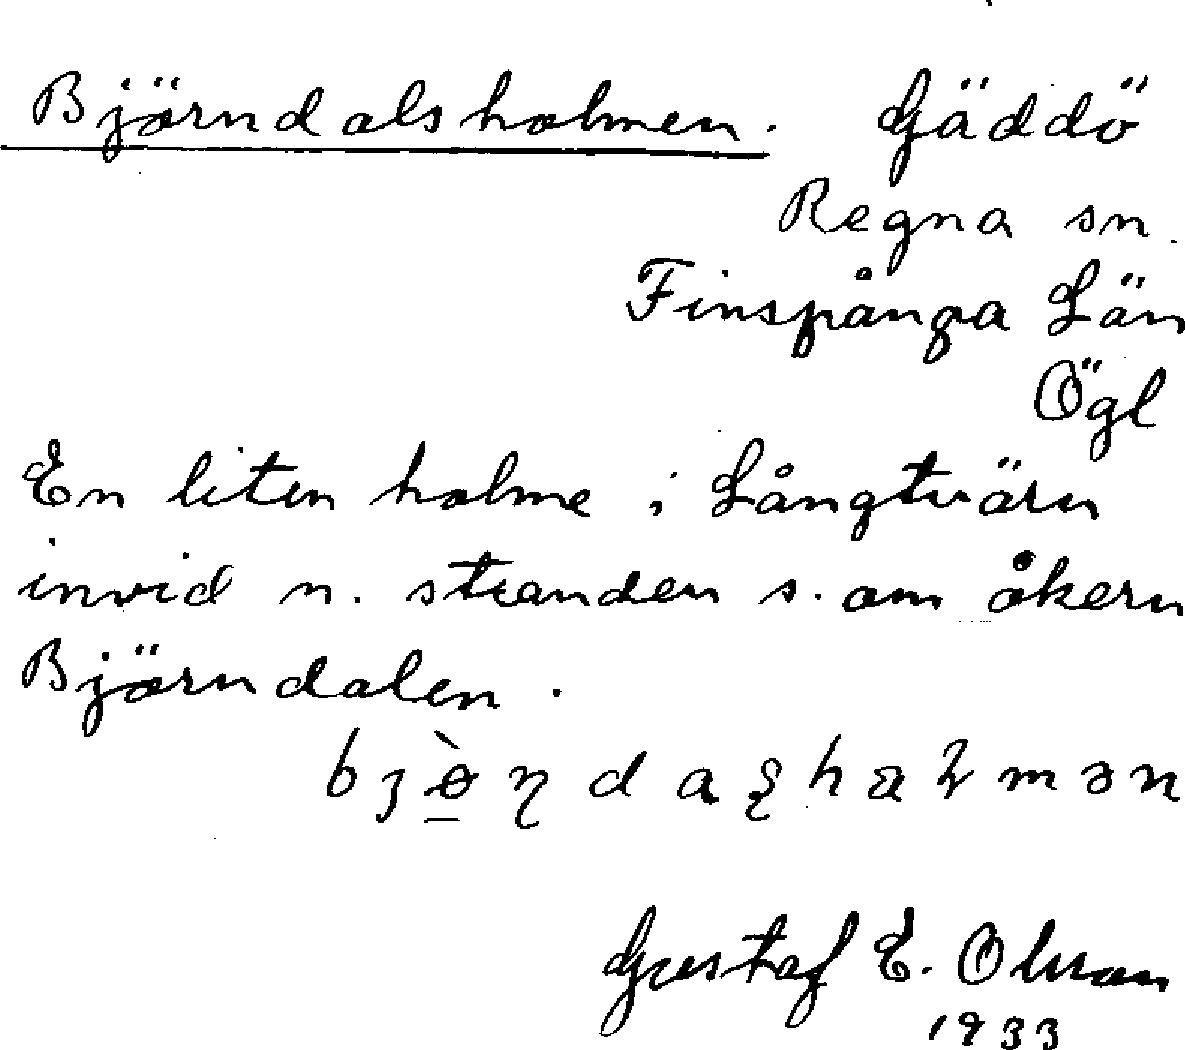 Björndalsholmen. Gäddö
Regna sn.
Finspånga Län
Ögl
En liten holme i Långtvärn
invid n. stranden s. om åkern
Björndalen.
Gustaf E. Olsson
1933